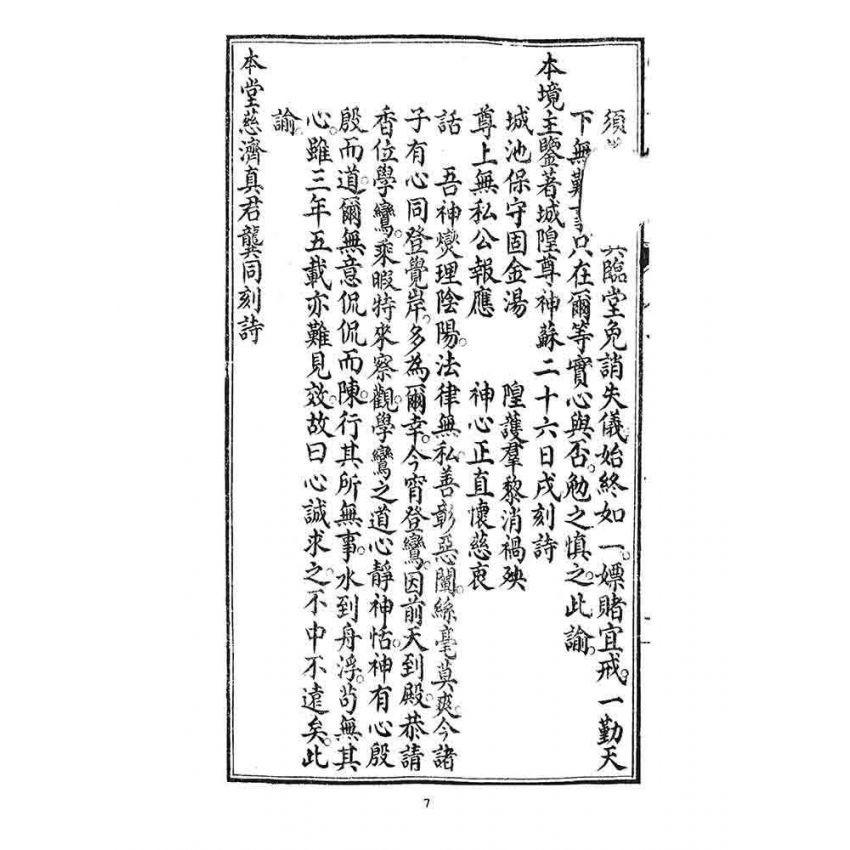 須臨堂免誚失儀始終如一。嫖賭宜戒。一勤天
下無難只在爾等實心與否。勉之慎之。此諭。
本境主鑒著城隍尊神蘇二十六日戌刻詩
城池保守固金湯　隍護羣黎消禍殃
尊上無私公報應　神心正直懷慈衷
話　吾神燮理陰陽。法律無私。善彰惡闡。絲毫莫爽。今諸
子有心同登覺岸。多為爾幸。今宵登鸞。因前天到殿。恭請
香位學鸞。乘暇特來察觀。學鸞之道。心靜神恬。神有心殷
殷而道。爾無意侃侃而陳。行其所無事。水到舟浮。苟無其
心。雖三年五載亦難見效。故曰心誠求之。不中不遠矣。此
諭。
本堂慈濟真君龔同刻詩
7